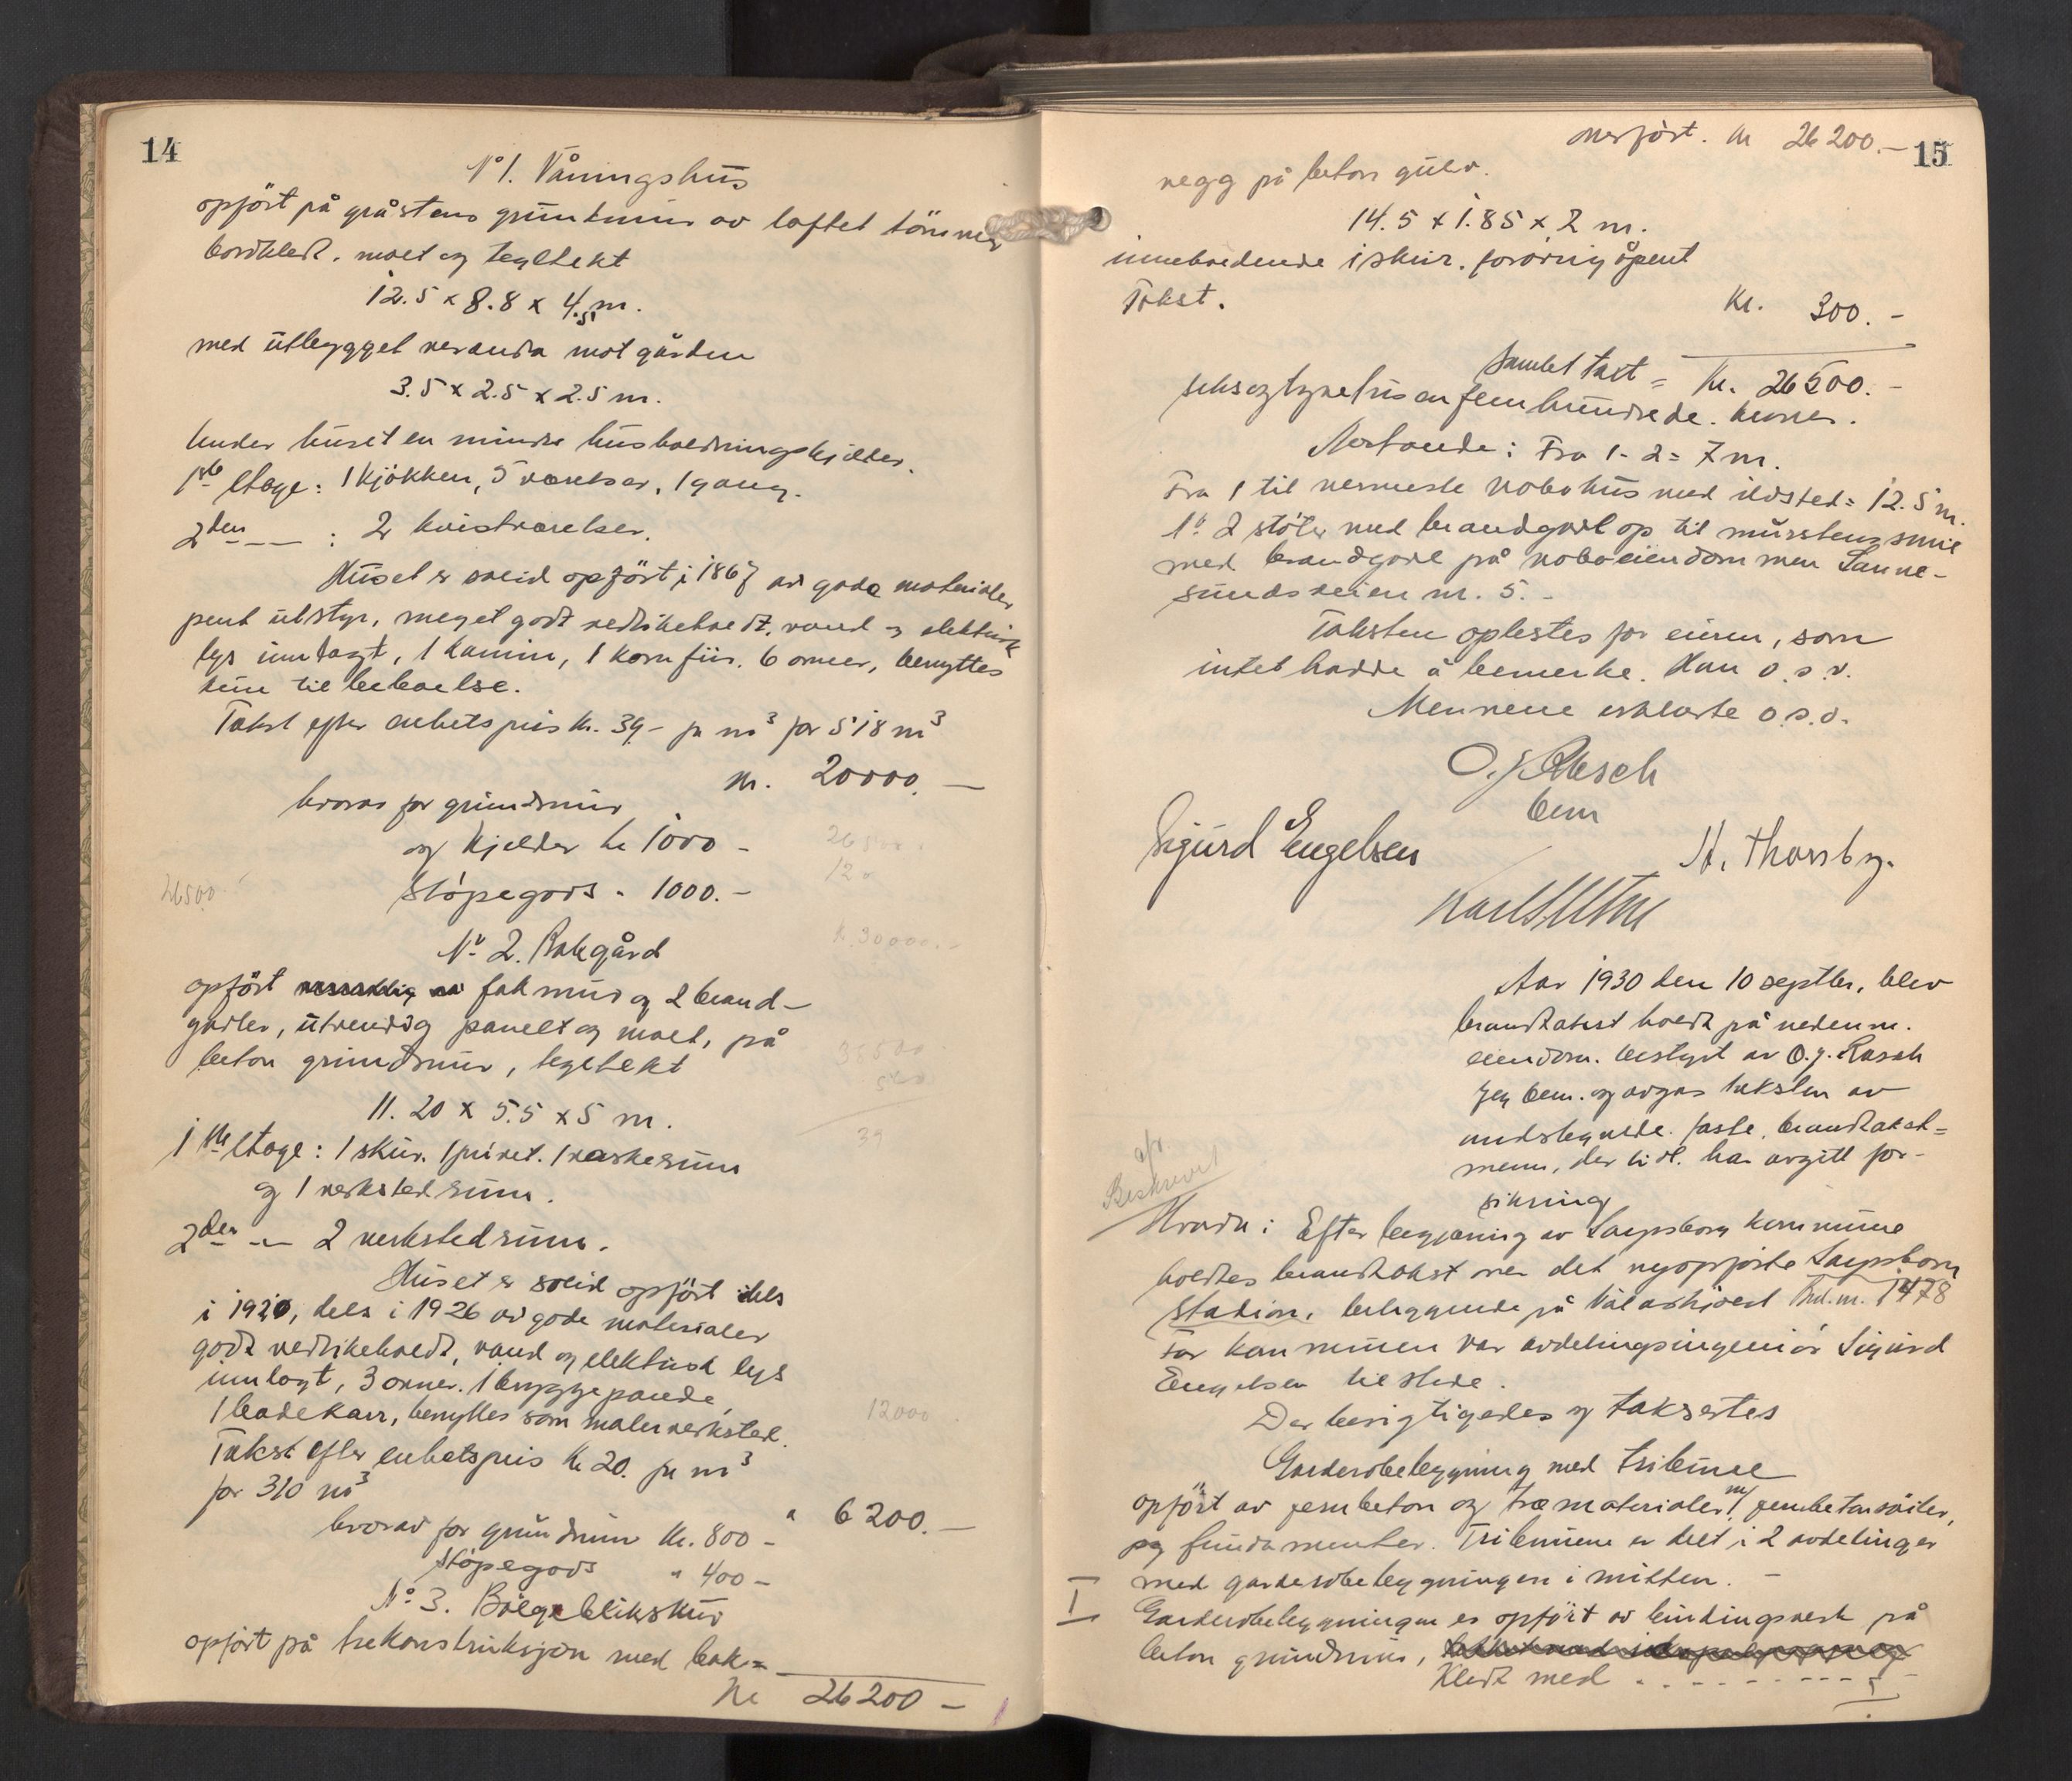 14
No 1. Våningshus
opført på gråstens grundmur av laftet tømmer
bordkledt, malt og tegltekt
12.5 x 8.8 x 4.5 m.
med utbygget veranda mot gården
3.5 x 2.5 x 2.5 m.
Under huset en mindre husholdningskjelder.
1ste Etage: 1 kjøkken, 5 værelser, 1 gang.
2den —— : 2 kvistværelser.
Huset er solid opført i 1867 av gode materialer
pent utstyr, meget godt vedlikeholdt, vand og elektrisk
lys innlagt, 1 kamin, 1 komfur. 6 ovner, benyttes
kun til beboelse.
Takst efter enhetspris kr. 39,- pr m3 for 518 m3
kr. 20000.—
hvorav for grundmur
og kjelder kr 1000 -
Støpegods " 1000.-
26500.-
No 2. Bakgård
opført fakmur og 2 brand-
gavler, utvendig panelt og malt, på
beton grundmur, tegltekt
11.20 x 5.5 x 5 m.
1ste Etage: 1 skur. 1 privet. 1 vaskerum
og 1 verkstedrum.
2den —— 2 verkstedrum.
Huset er solid opført dels
i 1920, dels i 1926 av gode materialer
godt vedlikeholdt, vand og elektrisk lys
innlagt, 3 ovner. 1 bryggepande,
1 badekarr, benyttes som malerverksted.
12000
Takst efter enhetspris kr 20. pr m3
for 310 m3
" 6200.—
hvorav for grundmur kr. 800 -
Støpegods " 400 -
No 3. Bølgeblikskur
opført på trekonstruksjon med bak=
Kr 26200 —
15
Overført. kr 26200.—
vegg på beton gulv.
14.5 x 1.85 x 2 m.
inneholdende 1 skur. forøvrig åpent
Takst. Kr. 300.-
Samlet takst = Kr. 26500.-
seksogtyvetusenfemhundrede kroner.
Avstande: Fra 1-2 = 7 m.
Fra 1 til nermeste nabohus med ildsted = 12.5 m.
No 2 støter med brandgavl op til mursten
med brandgavl på naboeiendommen Sanne-
sundsveien nr. 5.-
Taksten oplestes for eieren, som
intet hadde å bemerke. Han o.s.v.
Mennene erklærte o.s.v.
O. J. Rasch
bem
Sigurd Engelsen H. Thorsby.
Aar 1930 den 10 septbr, blev
brandtakst holdt på nedenn.
eiendom. bestyrt av O. J. Rasch
Jen bem. og avgav taksten av
undertegnede faste brandtakst=
menn, der tidl. har avgitt for-
sikring
Beskrevet
Hvada: Efter begjæring av Sarpsborg kommune
holdtes brandtakst over det nyopførte Sarpsborg
stadion, beliggende på Brd.nr. 1478
For kommunen var avdelingsingeniør Sigurd
Engelsen tilstede.
Der besigtigedes og taksertes
Garderobebygning med tribune
opført av jernbeton og træmaterialer m/ jernbetonsøiler,
og fundamenter. Tribunene er delt i 2 avdelinger
med garderobebygningen i midten. -
Garderobebygningen er opført av bindingsverk på
beton grundmur,
Kledt med